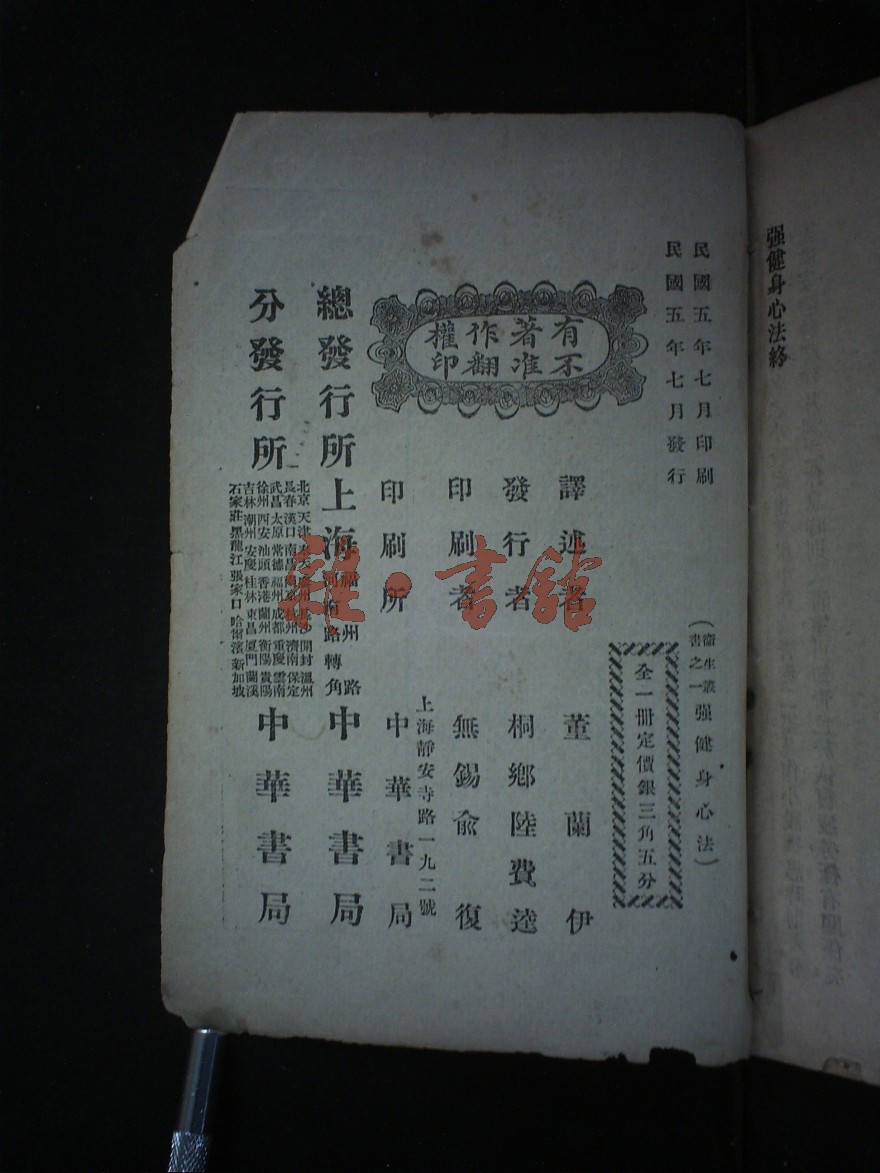 强健身心法終
民國五年七月印刷
民國五年七月發行
（衞生叢書之一强健身心法）
全一冊定價銀三角五分
有著作權
不准翻印
譯述者 董蘭伊
發行者 桐鄉陸費逵
印刷者 無錫俞復
上海靜安寺路一九二號
印刷所 中華書局
總發行所 上海福州路河南路轉角 中華書局
分發行所
北京 天津 奉天 廣州 長沙 開封 溫州
長春 漢口 南昌 南京 杭州 濟南 保定
武昌 太原 常德 福州 成都 重慶 雲南
徐州 西安 汕頭 香港 蘭州 衡陽 貴陽
吉林 潮州 安慶 桂林 東昌 厦門 蘭溪
石家莊 黑龍江 張家口 哈爾濱 新加坡
中華書局
雅·書館